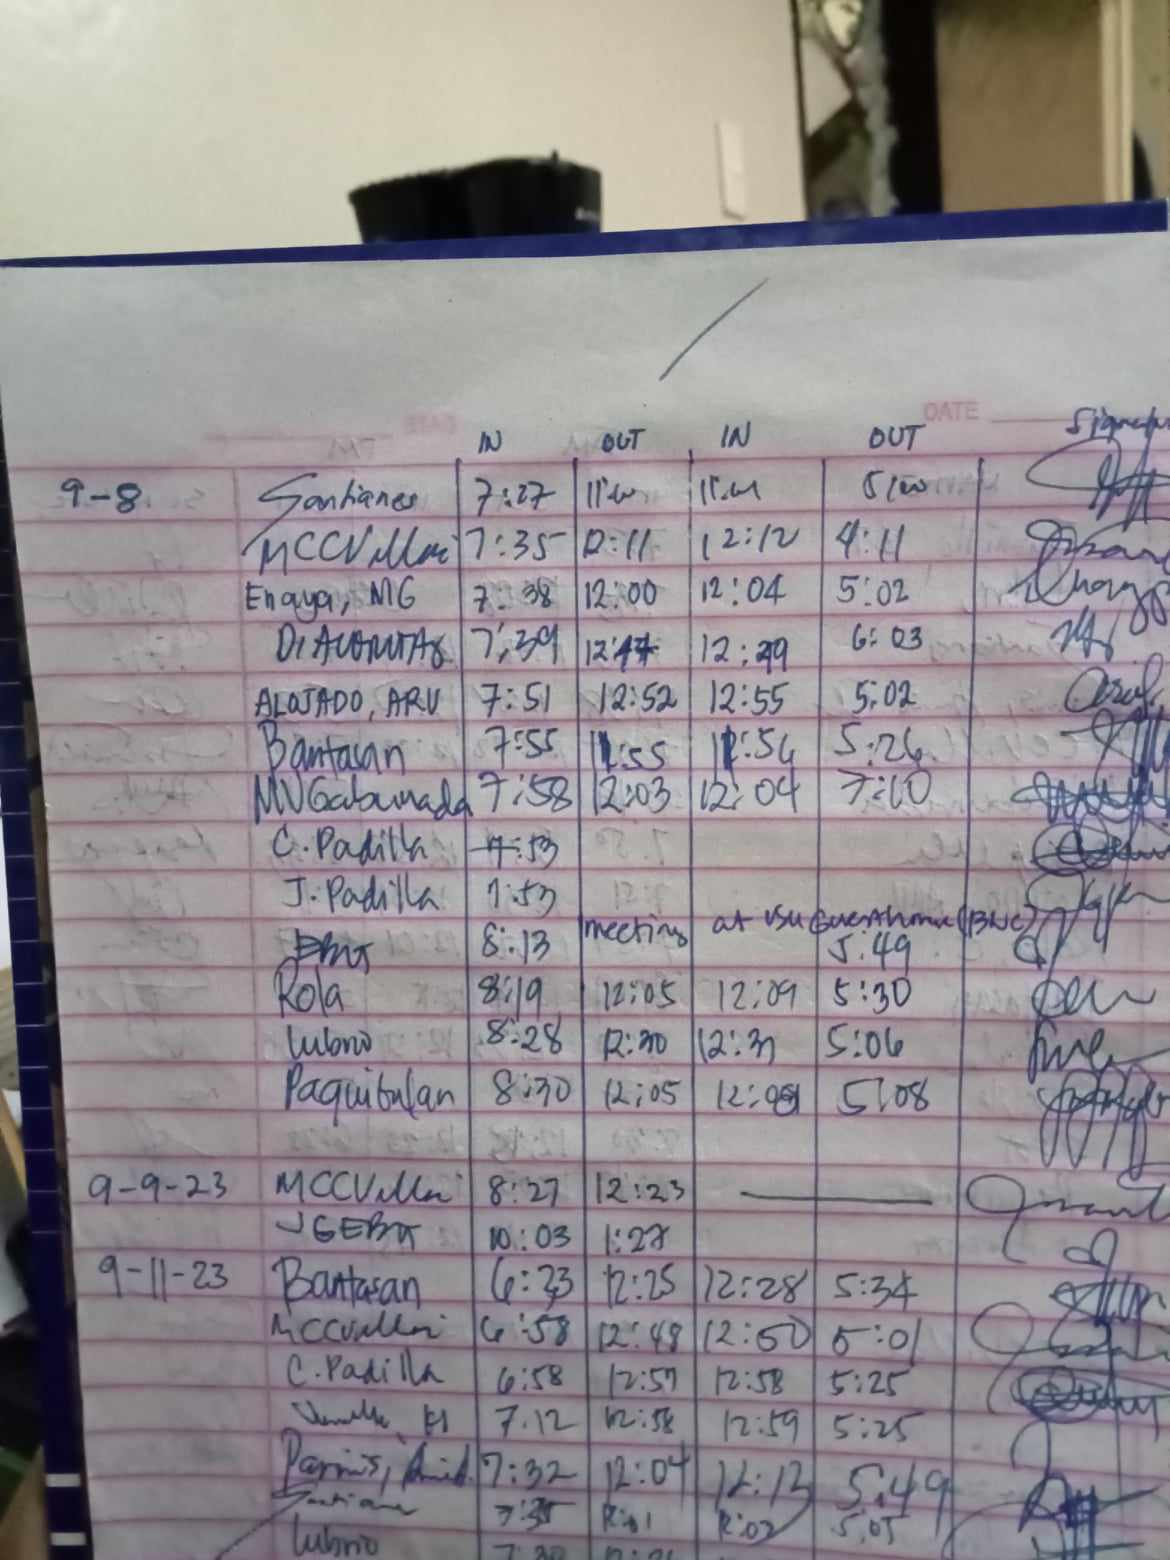 DATE DATE
IN OUT IN OUT
9-8 Santianes 7:27 5:00
MCCVillar 7:35 12:11 12:12 4:11
Enaya, MG 7:38 12:00 12:04 5:02
7:39 12:47 12:49 6:03
ALOJADO, ARV 7:51 12:52 12:55 5:02
Bantasan 7:55 12:55 12:56 5:26
MVGabunada 7:58 12:03 12:04 7:10
C. Padilla 7:53
J. Padilla 7:53
meeting at VSU Guesthouse
8:13 5:49
Rola 8:19 12:05 12:09 5:30
Lubrio 8:28 12:30 12:31 5:06
Paquibulan 8:30 12:05 5:08
9-9-23 MCCVillar 8:27 12:23
JGEBR 10:03 1:27
9-11-23 Bantasan 6:33 12:25 12:28 5:34
MCCVillar 6:58 12:48 12:50 5:01
C. Padilla 6:58 12:57 12:58 5:25
7:12 12:58 12:59 5:25
7:32 12:04 12:13 5:49
7:35 12:01 12:02 5:05
Lubrio 7:30